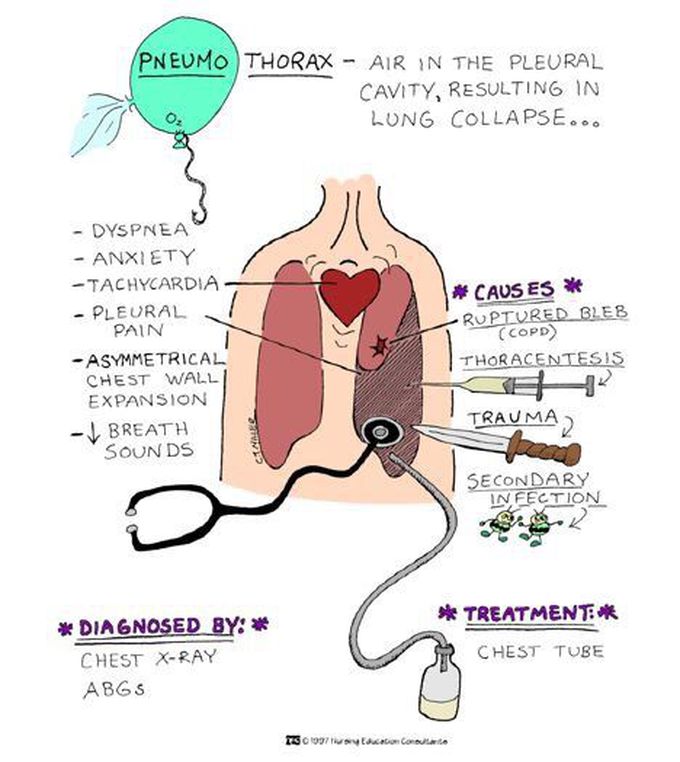 PNEUMO THORAX - AIR IN THE PLEURAL
CAVITY, RESULTING IN
LUNG COLLAPSE...
O₂
- DYSPNEA
- ANXIETY
- TACHYCARDIA
- PLEURAL
PAIN
- ASYMMETRICAL
CHEST WALL
EXPANSION
- ↓ BREATH
SOUNDS
* CAUSES *
RUPTURED BLEB
(COPD)
THORACENTESIS
TRAUMA
SECONDARY
INFECTION
C.J. MILLER
* DIAGNOSED BY: *
CHEST X-RAY
ABGs
* TREATMENT: *
CHEST TUBE
© 1997 Nursing Education Consultants